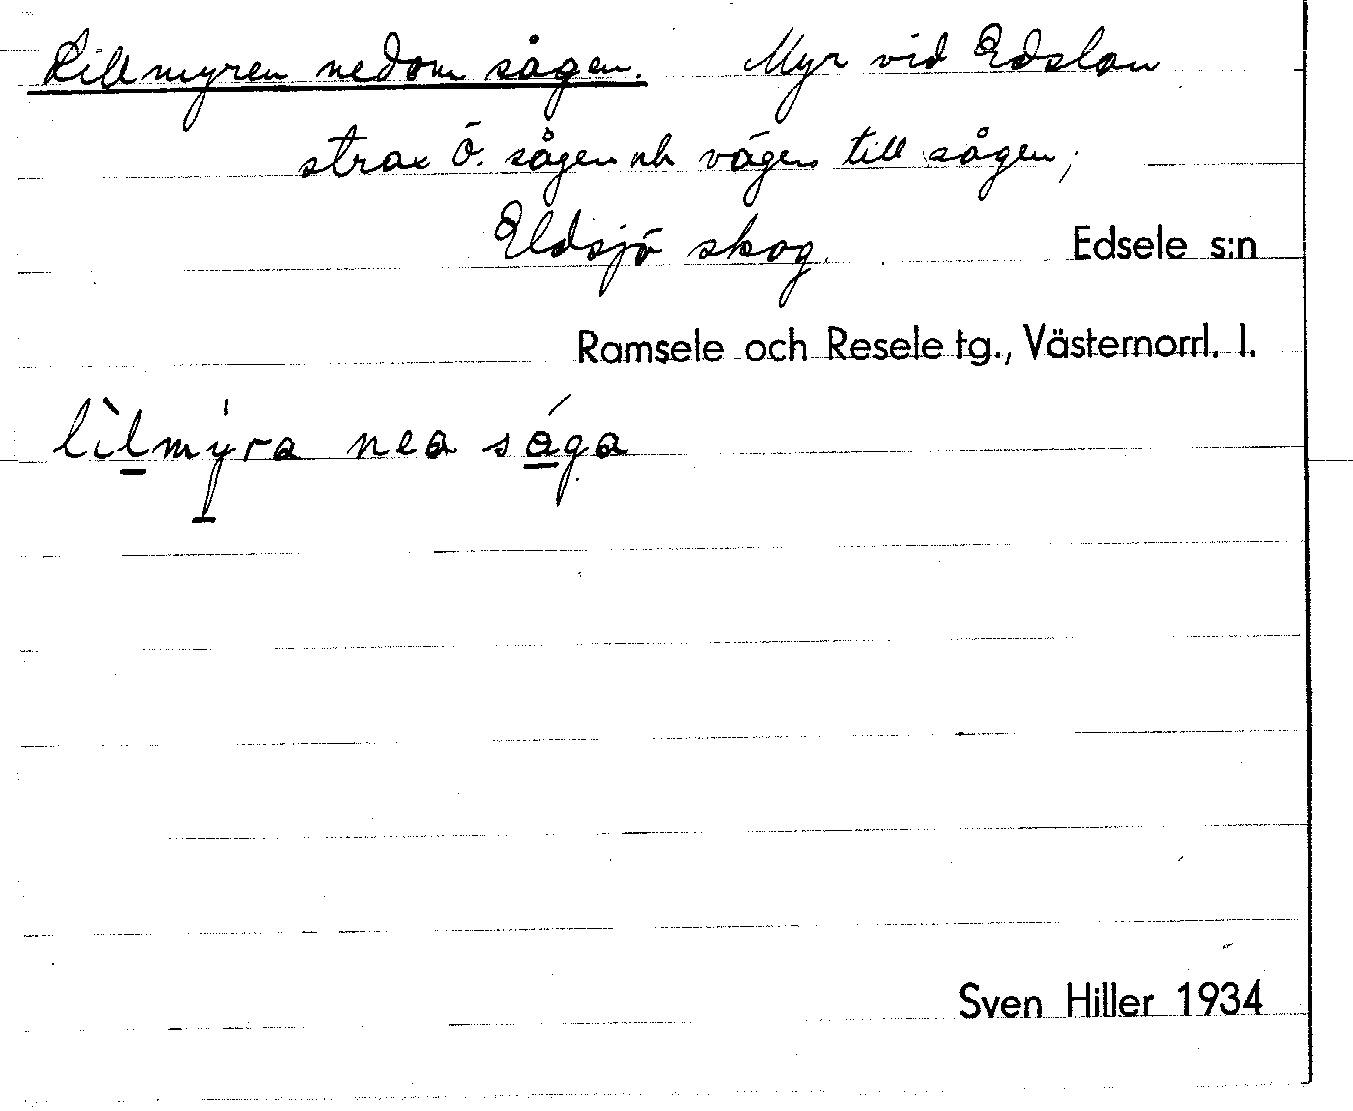 Lillmyren nedom sågen. Myr vid Edslan
strax Ö. sågen och vägen till sågen,
Eldsjö skog. Edsele s:n
Ramsele och Resele tg., Västernorrl. l.
lìlmýra nea sága
Sven Hiller 1934